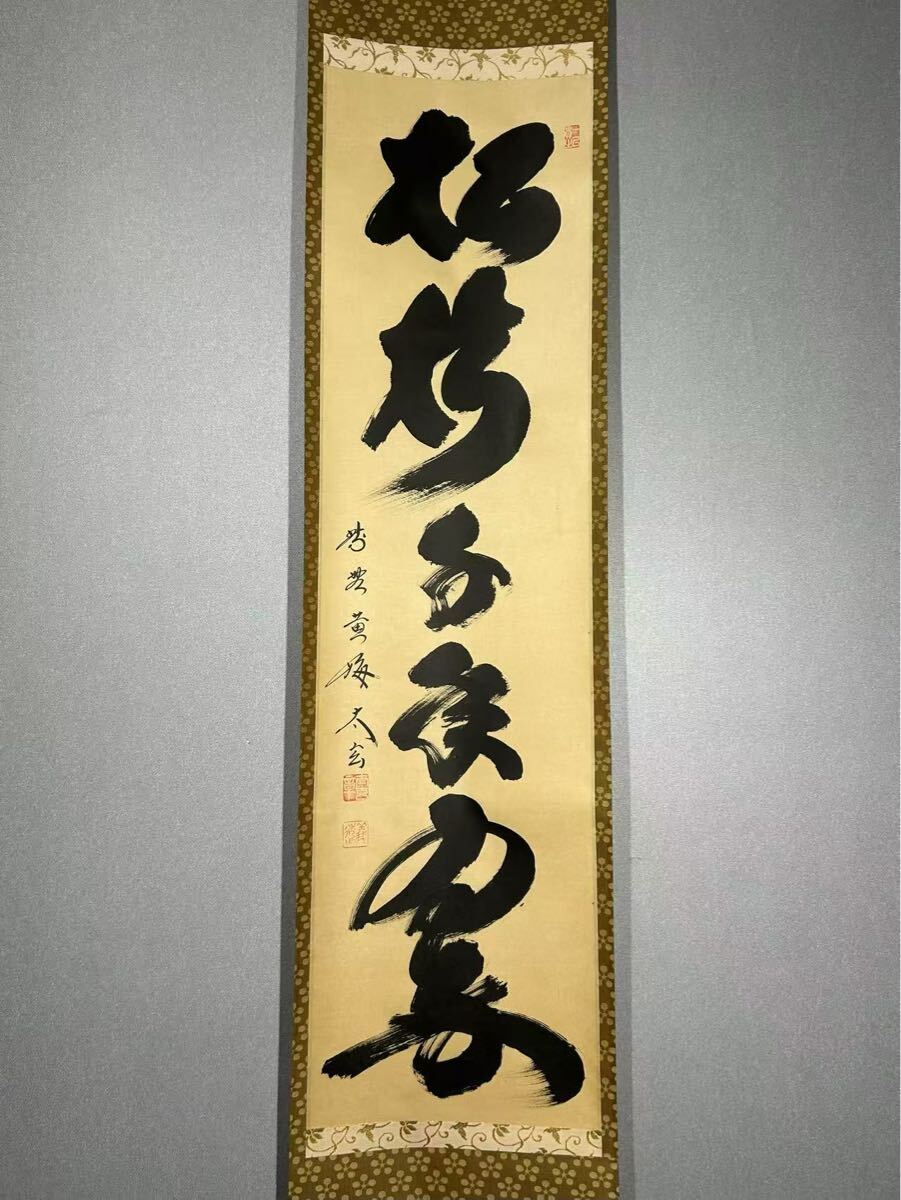 松樹千年翠
紫野黄梅太玄